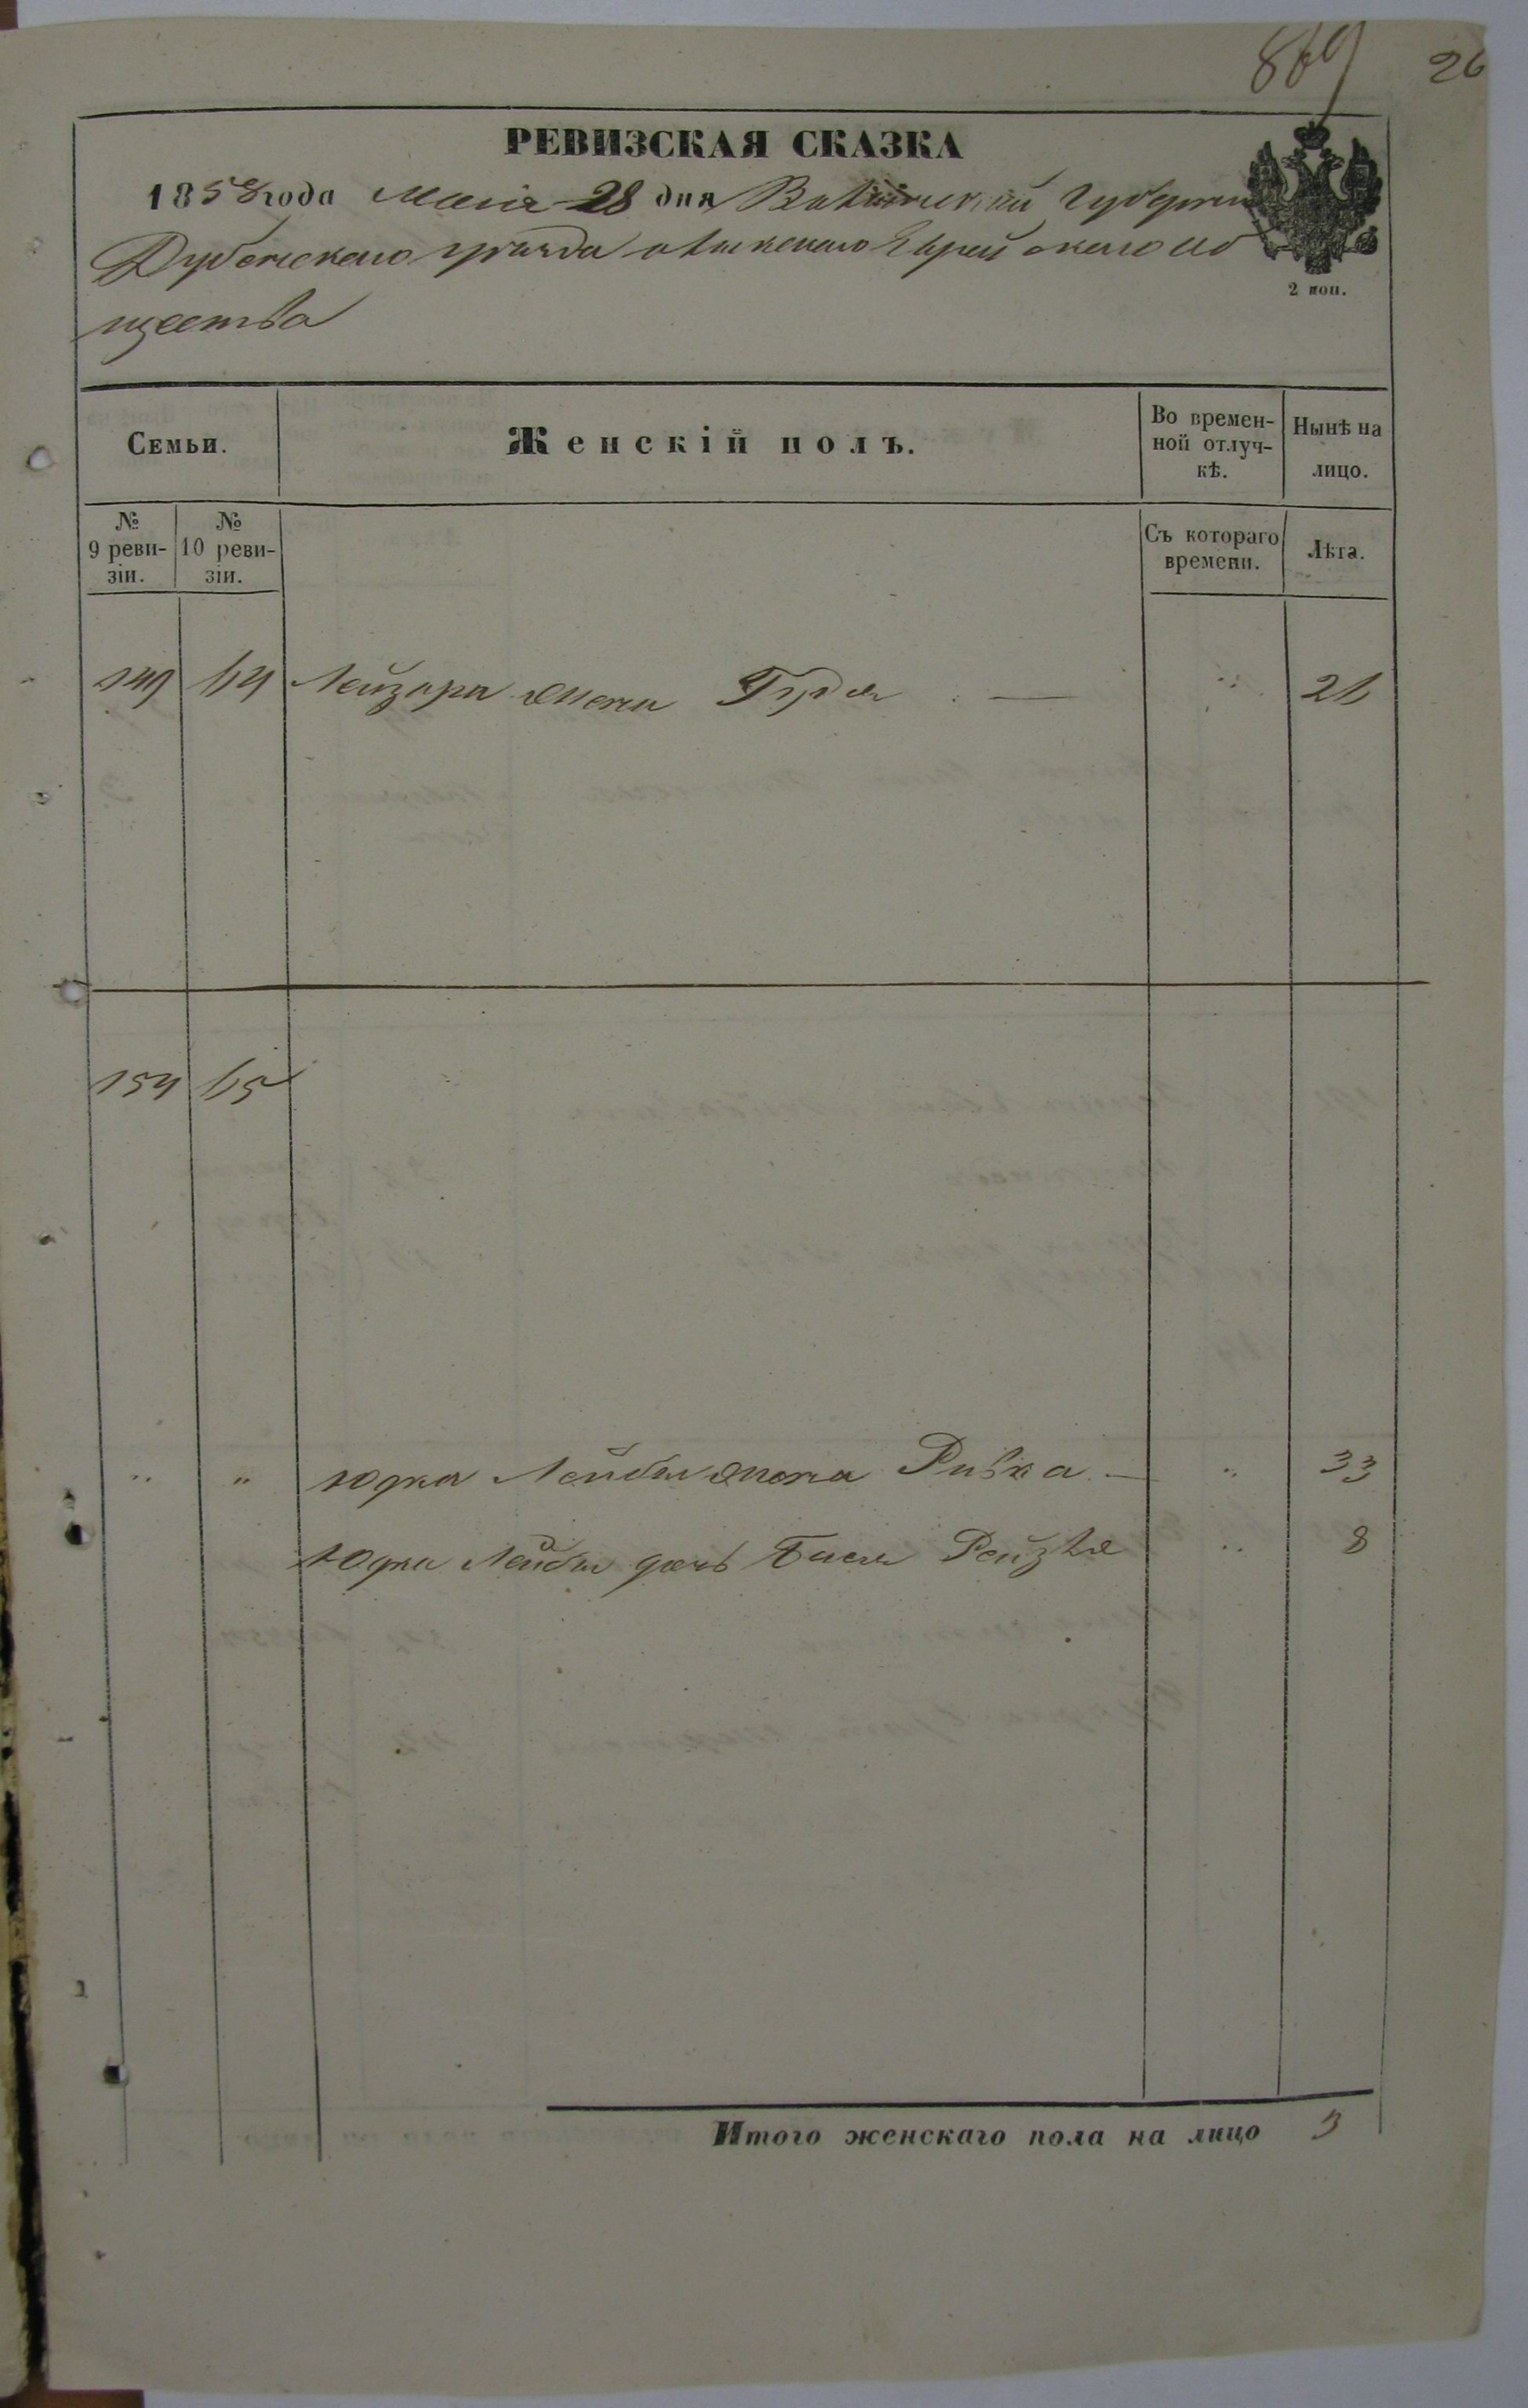 869 26
РЕВИЗСКАЯ СКАЗКА
1858 года Маія 28 дня Волынской Губерніи
Дубенскаго уѣзда Еврейскаго об
щества
2 коп.
Семьи. Женскій полъ. Во времен-ной отлуч-кѣ. Нынѣ на лицо.
№ 9 реви-зіи. № 10 реви-зіи. Съ котораго времени. Лѣта.
149 64 Лейзора жена Гудя — " 26
154 65
" " Юдка Лейбы жена Ривка — " 33
Юдки Лейбы дочь Бася Рейзля " 8
Итого женскаго пола на лицо 3